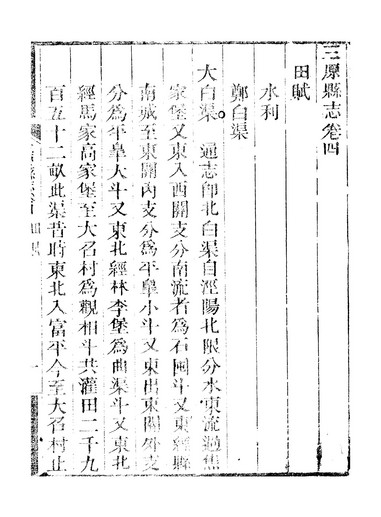 三原縣志卷四
田賦
水利
鄭白渠
大白渠。通志卽北白渠自涇陽北限分水東流過焦
家堡又東入西關支分南流者為石國斗又東經縣
南城至東關內支分為平皐小斗又東出東關外支
分為平皐大斗又東北經林李堡為曲渠斗又東北
經馬家高家堡至大召村為觀相斗共灌田二千九
百五十二畝此渠昔時東北入富平今至大召村止